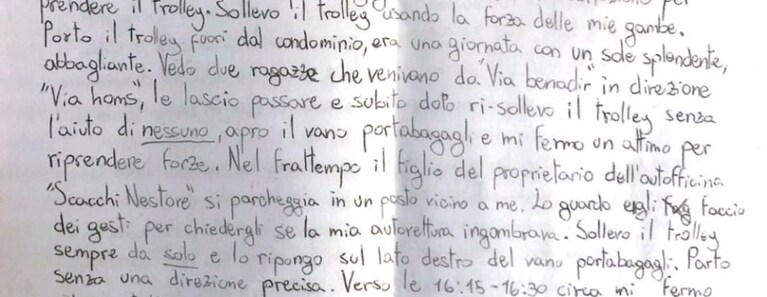 prendere il trolley. Sollevo il trolley usando la forza delle mie gambe.
Porto il trolley fuori dal condominio, era una giornata con un sole splendente,
abbagliante. Vedo due ragazze che venivano da "Via benadir" in direzione
"Via homs", le lascio passare e subito doto ri-sollevo il trolley senza
l'aiuto di nessuno, apro il vano portabagagli e mi fermo un attimo per
riprendere forze. Nel frattempo il figlio del proprietario dell'autofficina
"Scacchi Nestore" si parcheggia in un posto vicino a me. Lo guardo e gli faccio
dei gesti per chiedergli se la mia autovettura ingombrava. Sollevo il trolley
sempre da solo e lo ripongo sul lato destro del vano portabagagli. Parto
senza una direzione precisa. Verso le 16:15-16:30 circa mi fermo